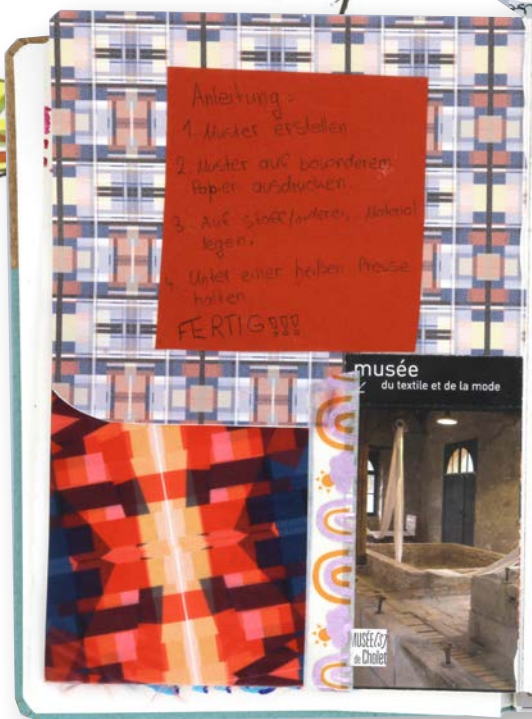 Anleitung:
1. Muster erstellen
2. Muster auf besonderem
Papier ausdrucken
3. Auf Stoff/anderes Material
legen.
4. Unter einer heißen Presse
halten
FERTIG!!!
musée
du textile et de la mode
MUSÉE(S)
de Cholet